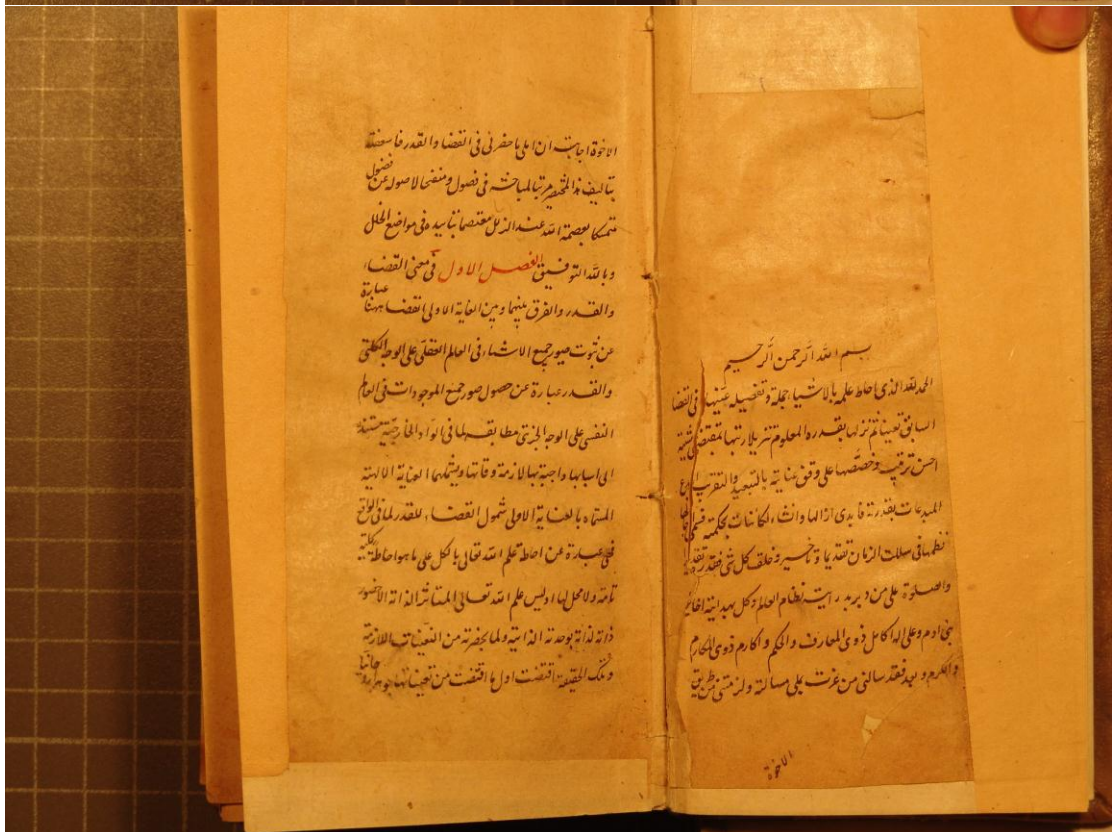 بسم الله الرحمن الرحيم
الحمد لله الذى احاط علمه بالاشيا جملة و تفصيلا عينها فى القضا
السابق تعينا ثم نزلها بقدره المعلوم تنزيلا رتبها بمقتضى مشيته
احسن ترتيب و خصصها على وفق عنايته بالتبعيد والتقريب
المبدعات بقدرته فابدى آزالها وانشاء الكائنات بحكمته
نظمها فى سلك الزمان تقديما و تاخيرا خلق كل شى فقدر
والصلوة على من دبر بدرايته نظام العالم وكل بهدايته
بنى ادم وعلى اله اكامل ذوى المعارف والحكم و اكارم ذوى المكارم
والكرم و بعد فقد سالنى من عزت على مسالته ولزمتنى من طريق
الاخوة
الاخوة اجابته ان املى ما حضرنى فى القضا والقدر فاسعفته
بتاليف هذا المختصر مرتبا لمباحثه فى فصول ومنقحا لاصوله عن فضول
متمسكا بعصمة الله عند الزلل معتصما بتاييده فى مواضع الخلل
وبالله التوفيق الفصل الاول فى معنى القضاء
والقدر والفرق بينهما وبين العناية الاولى القضا ههنا عبارة
عن ثبوت صور جميع الاشياء فى العالم العقلى على الوجه الكلى
والقدر عبارة عن حصول صور جميع الموجودات فى العالم
النفسى على الوجه الجزئى مطابقة لما فى المواد الخارجية مستندة
الى اسبابها واجبة بها لازمة لاوقاتها ويشملهما العناية الالهية
المسماه بالعناية الاولى شمول القضاء للقدر لما فى الواقع
فهى عبارة عن احاطة علم الله تعالى بالكل على ما هو احاطة كلية
تامة ولا محل لها اذ ليس علم الله تعالى الا حضور
ذاته لذاته بوحدته الذاتية ولما بحضرته من التعينات اللازمة
وتلك الحقيقة اقتضت اول ما اقتضت من تعيناتها جوهرا